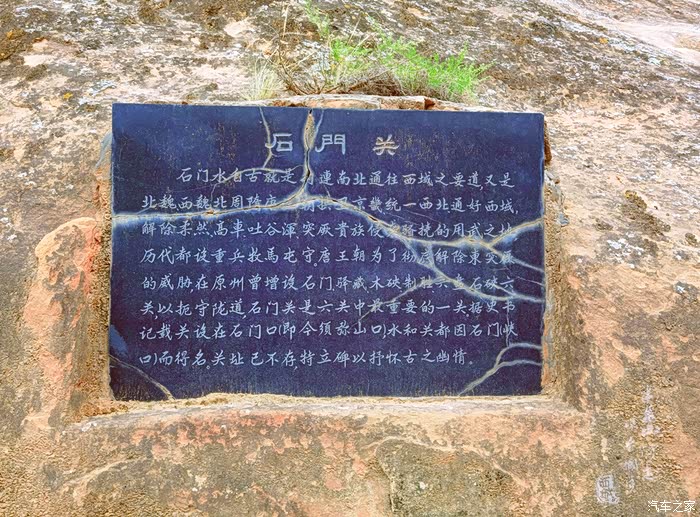 石門关
石门水自古就是 連南北通往西域之要道又是
北魏西魏北周隋唐 京畿统一西北通好西域,
解除柔然高車吐谷浑突厥贵族侵 骚挠的用武之地
历代都设重兵牧馬屯守唐王朝为了彻底解除東突厥
的威胁在原州曾增设石门驿藏木硖制胜 石硖六
关以扼守陇道石门关是六关中最重要的一关据史书
记载关设在石门口(即今须弥山口)水和关都因石门(峡
口)而得名。关址已不存,特立碑以抒怀古之幽情。
汽车之家